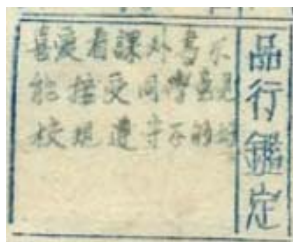 品行鑑定
喜愛看課外書不
能接受同學意見
校規遵守不的